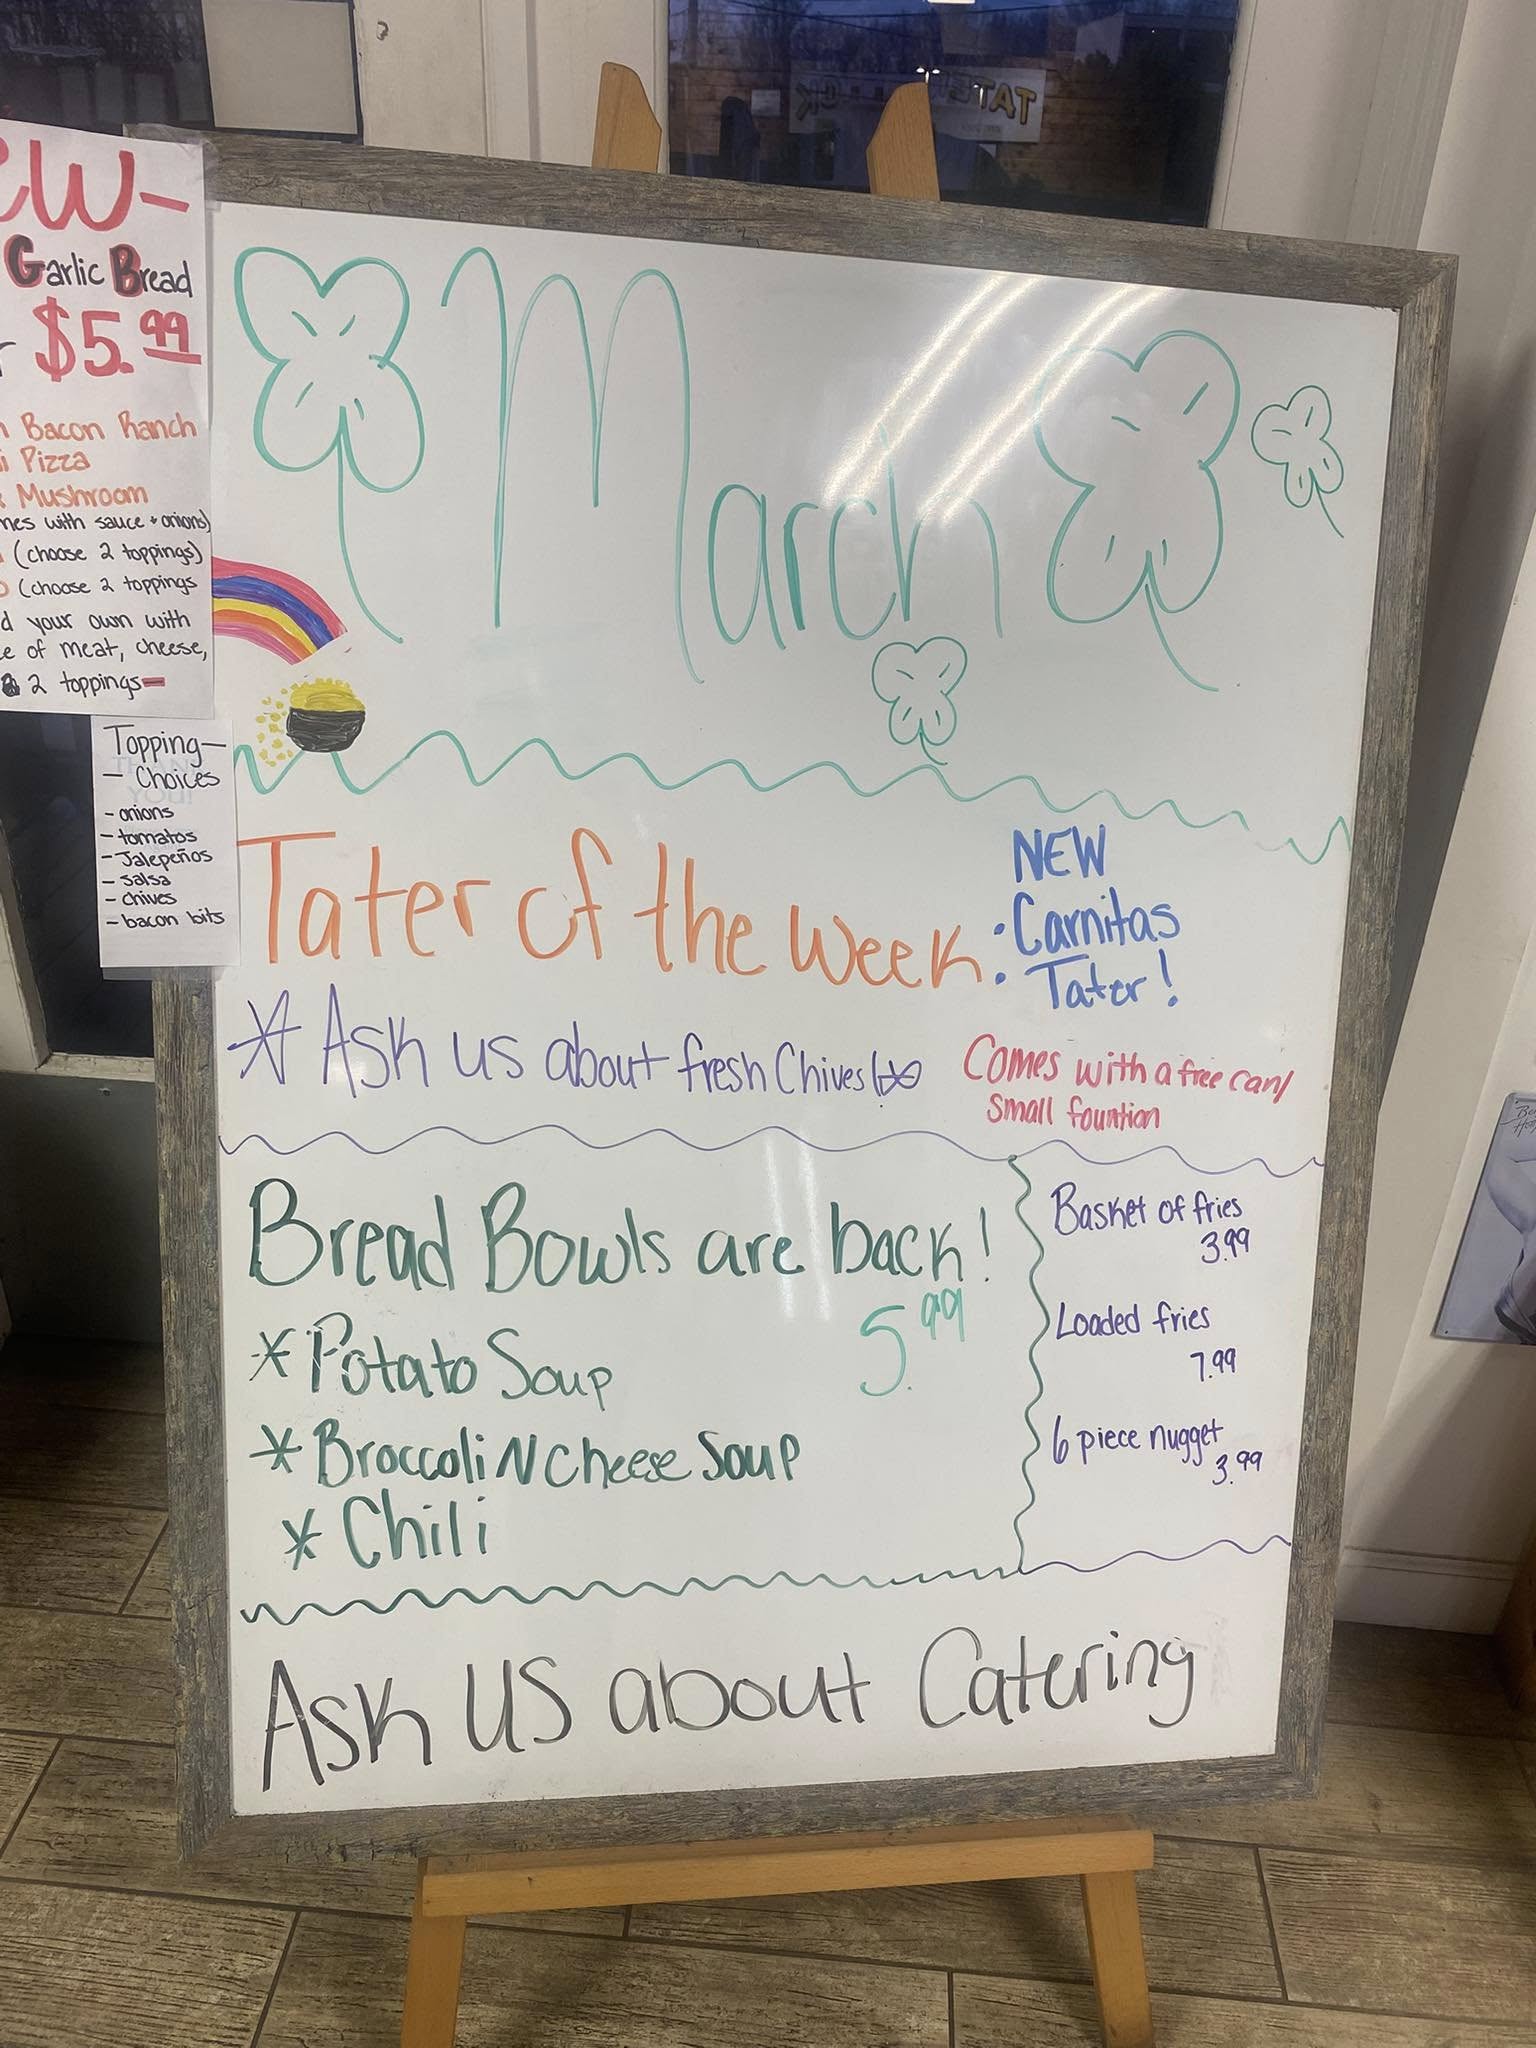 Garlic Bread
$5.99
Bacon Ranch
Pizza
Mushroom
with sauce + onions)
(choose 2 toppings)
(choose 2 toppings
your own with
of meat, cheese,
2 toppings
Topping
Choices
- onions
- tomatos
- Jalepeños
- salsa
- chives
- bacon bits
March
Tater of the Week:
NEW
Carnitas
Tater!
* Ask us about fresh Chives!
Comes with a free can/
small fountion
Bread Bowls are back!
5.99
* Potato Soup
* Broccoli N Cheese Soup
* Chili
Basket of fries
3.99
Loaded fries
7.99
6 piece nugget
3.99
Ask us about Catering